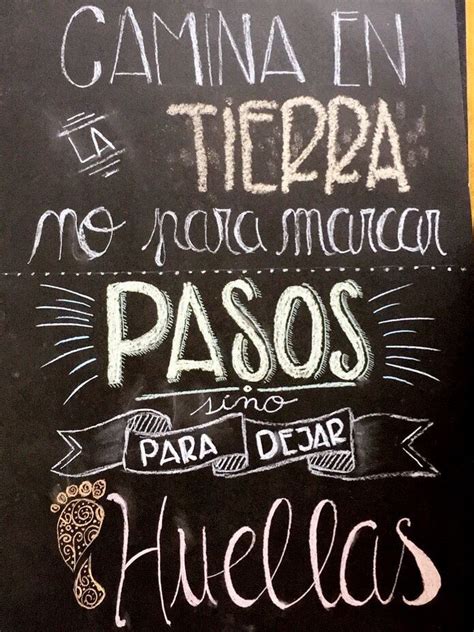 CAMINA EN
LA TIERRA
no para marcar
PASOS
sino
PARA DEJAR
Huellas